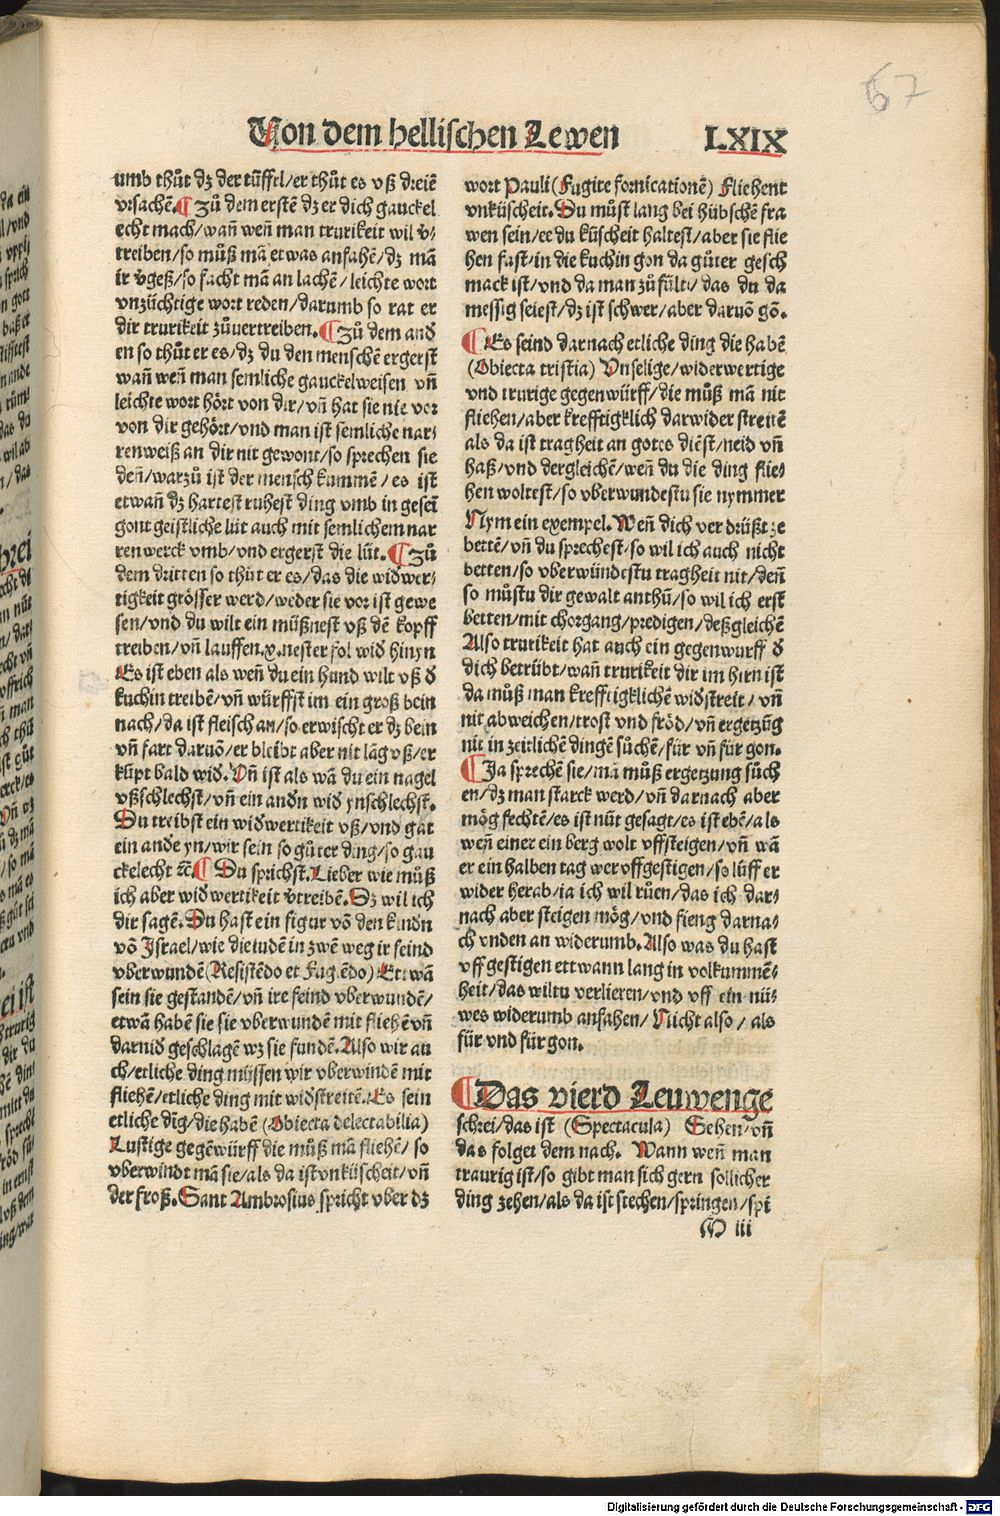 67
Von dem hellischen Lewen LXIX
umb thůt dz der tüffel/er thůt es vß dreiē
vrsachē. ¶ Zů dem erstē dz er dich gauckel
echt mach/wañ weñ man trurikeit wil v̄-
treiben/so můß mā etwas anfahē/dz mā
ir v̄geß/so facht mā an lachē/leichte wort
vnzüchtige wort reden/darumb so rat er
dir trurikeit zůuertreiben. ¶ Zů dem and
en so thůt er es/dz du den menschē ergerst
wañ weñ man semliche gauckelweisen vñ
leichte wort hört von dir/vñ hat sie nie vor
von dir gehört/vnd man ist semliche nar-
renweiß an dir nit gewont/so sprechen sie
deñ/warzů ist der mensch kummē/es ist
etwañ dz hartest ruhest ding vmb in gesei
gont geistliche lüt auch mit semlichem nar
renwerck vmb/vnd ergerst die lüt. ¶ Zů
dem dritten so thůt er es/das die widwer-
tigkeit grösser werd/weder sie vor ist gewe
sen/vnd du wilt ein müßnest vß dē kopff
treiben/vñ lauffen.x.nester fol wid hinyn
Es ist eben als weñ du ein hund wilt vß d
kuchin treibē/vñ würffst im ein groß bein
nach/da ist fleisch an/so erwischt er dz bein
vñ fart daruō/er bleibt aber nit lāg vß/er
kūpt bald wid. Vñ ist als wā du ein nagel
vßschlechst/vñ ein andn wid ynschlechst.
Du treibst ein widwertikeit vß/vnd gat
ein ande yn/wir sein so gůter ding/so gau
ckelecht ꝛc. ¶ Du sprichst. Lieber wie můß
ich aber widwertikeit v̄treibē. Dz wil ich
dir sagē. Du hast ein figur vō den kindn
vō Israel/wie die iudē in zwē weg ir feind
vberwundē (Resistēdo et Fugiēdo) Ettwā
sein sie gestandē/vñ ire feind vberwundē/
etwā habē sie sie vberwundē mit fliehē vñ
darnid geschlagē wz sie fundē. Also wir au
ch/etliche ding müssen wir vberwindē mit
fliehē/etliche ding mit widstreitē. Es sein
etliche dīg/die habē (Obiecta delectabilia)
Lustige gegēwürff die můß mā fliehē/so
vberwindt mā sie/als da ist vnküscheit/vñ
der froß. Sant Ambrosius spricht vber dz
wort Pauli (Fugite fornicationē) Fliehent
vnküscheit. Du můst lang bei hübschē fra
wen sein/ee du küscheit haltest/aber sie flie
hen fast/in die kuchin gon da gůter gesch
mack ist/vnd da man zů fült/das du da
messig seiest/dz ist schwer/aber daruō gō.
¶ Es seind darnach etliche ding die habē
(Obiecta tristia) Vnselige/widerwertige
vnd trurige gegenwürff/die můß mā nit
fliehen/aber krefftigklich darwider streitē
als da ist tragheit an gotes diēst/neid vñ
haß/vnd dergleichē/weñ du die ding flie-
hen woltest/so vberwundestu sie nymmer
Nym ein exempel. Weñ dich verdrüßt ze
bettē/vñ du sprechest/so wil ich auch nicht
betten/so vberwündestu tragheit nit/deñ
so můstu dir gewalt anthů/so wil ich erst
betten/mit chorgang/predigen/deßgleichē
Also trurikeit hat auch ein gegenwurff d
dich betrübt/wañ trurikeit dir im hirn ist
da můß man krefftigklichē widstreit/vñ
nit abweichen/trost vnd fröd/vñ ergetzūg
nit in zeitlichē dingē sůchē/für vñ für gon.
¶ Ja sprechē sie/mā můß ergetzung sůch
en/dz man starck werd/vñ darnach aber
mög fechtē/es ist nüt gesagt/es ist ebē/als
weñ einer ein berg wolt vffsteigen/vñ wā
er ein halben tag wer vffgestigen/so lüff er
wider herab/ia ich wil růen/das ich dar-
nach aber steigen mög/vnd fieng darna-
ch vnden an widerumb. Also was du hast
vff gestigen ettwann lang in volkummē-
heit/das wiltu verlieren/vnd vff ein nü-
wes widerumb anfahen/Nicht also/als
für vnd für gon.
¶ Das vierd Leuwenge
schrei/das ist (Spectacula) Sehen/vñ
das folget dem nach. Wann weñ man
traurig ist/so gibt man sich gern sollicher
ding zehen/als da ist stechen/springen/spi
M iii
Digitalisierung gefördert durch die Deutsche Forschungsgemeinschaft - DFG